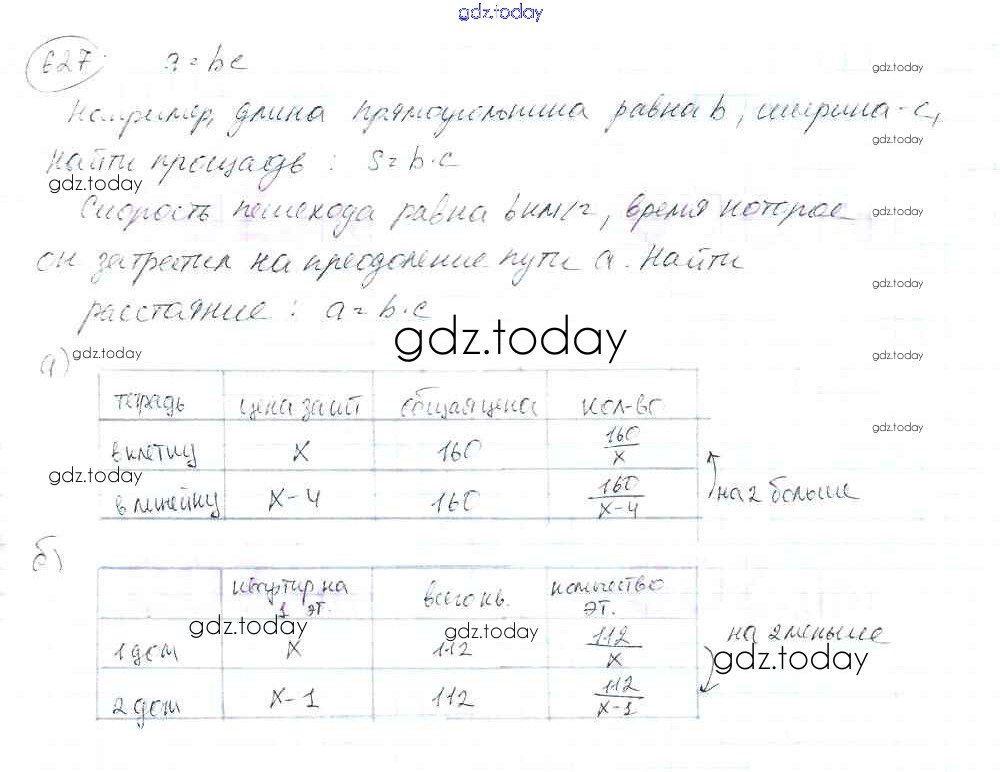 gdz.today
627. a = bc
gdz.today
Например, длина прямоугольника равна b, ширина - c,
gdz.today
найти площадь : S = b·c
gdz.today
Скорость пешехода равна b км/г, время которое
gdz.today
он затратил на преодоление пути a. Найти
gdz.today
расстояние : a = b·c
gdz.today
а) gdz.today
gdz.today
тетрадь цена за шт общая цена кол-во
gdz.today
в клетку x 160 160/x
gdz.today
в линейку x-4 160 160/x-4 на 2 больше
б)
квартир на 1 эт. всего кв. количество эт.
gdz.today gdz.today
1 дом x 112 112/x на 2 меньше
gdz.today
2 дом x-1 112 112/x-1